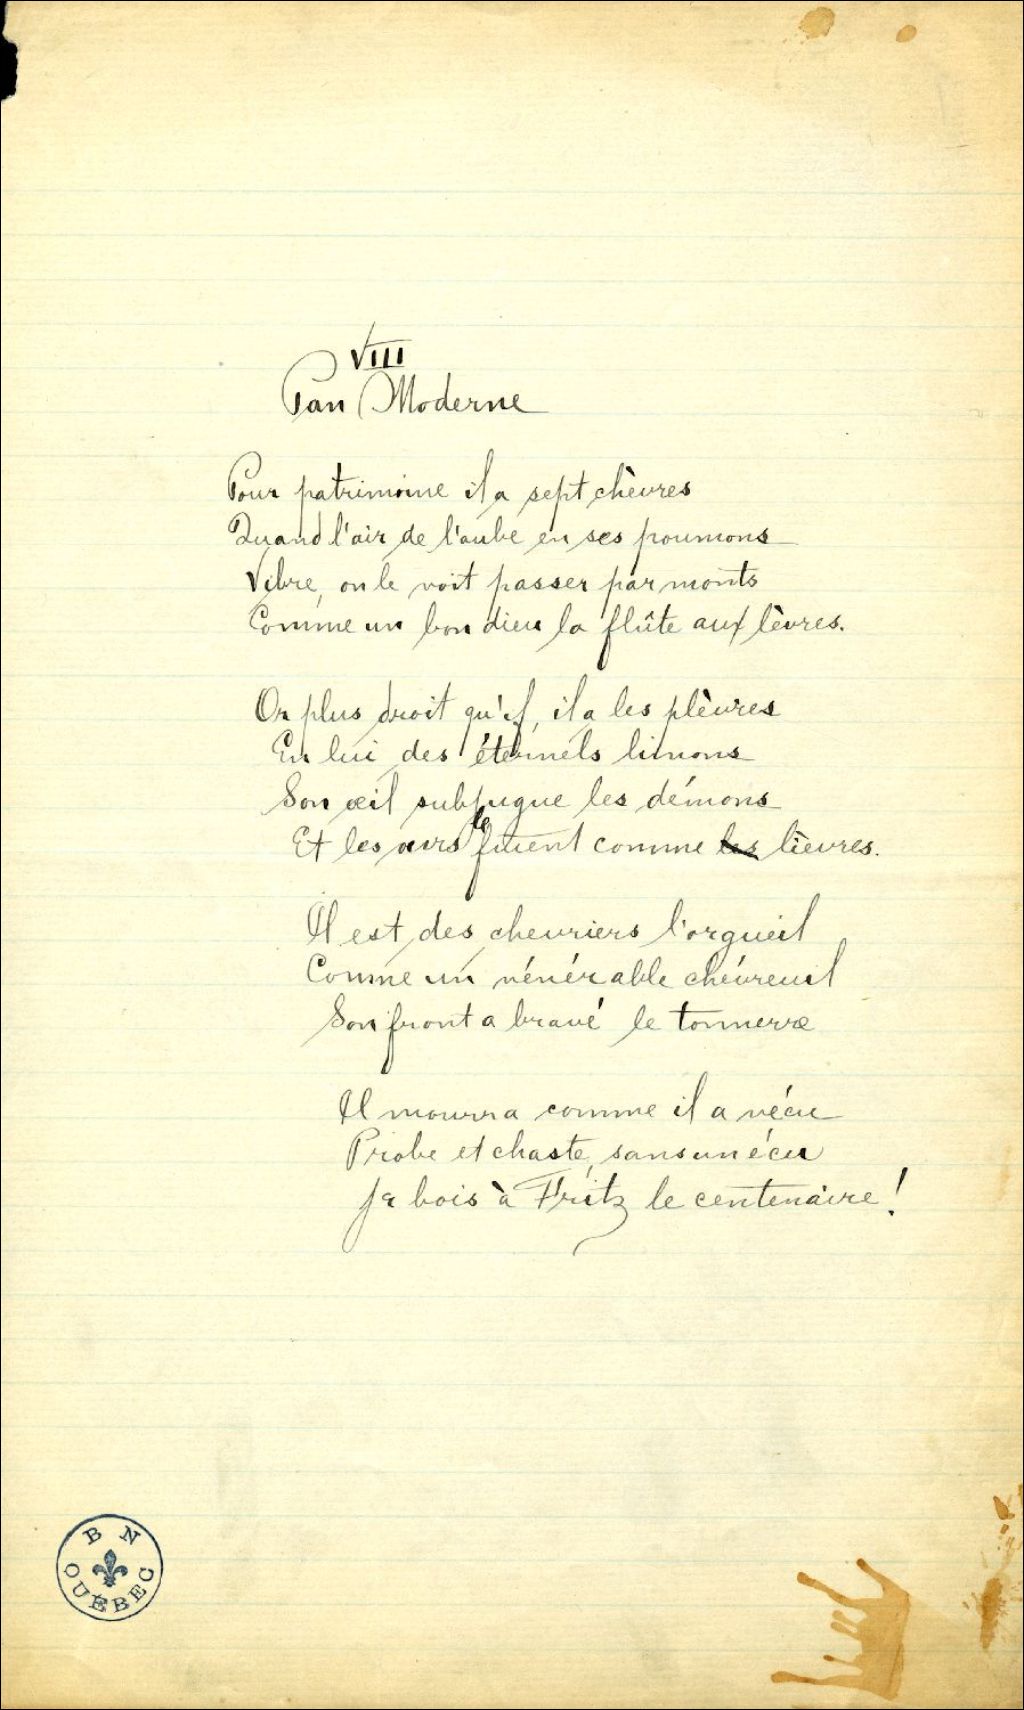 VIII
Pan Moderne
Pour patrimoine il a sept chèvres
Quand l'air de l'aube en ses poumons
Vibre, on le voit passer par monts
Comme un bon dieu la flûte aux lèvres.
Or plus droit qu'if, il a les plèvres
En lui des éternels limons
Son œil subjugue les démons
Et les ours le fuient comme les lièvres.
Il est des chevriers l'orgueil
Comme un vénérable chévreuil
Son front a bravé le tonnerre
Il mourra comme il a vécu
Probe et chaste, sans un écu
Je bois à Fritz le centenaire!
B N
QUÉBEC